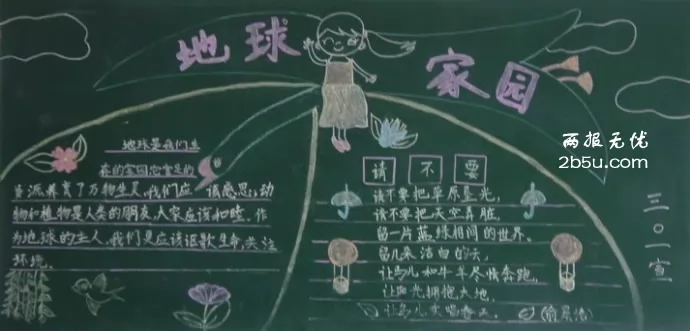 地球家园
两报无忧
2b5u.com
地球是我们生
存的家园,您宽足的
养育了万物生灵,我们应该感恩,动
物和植物是人类的朋友,大家应该和睦,作
为地球的主人,我们更应该讴歌生命,关注
环境。
请不要
请不要把草原
请不要把天空弄脏,
留一片蓝绿相间的世界。
留几朵洁白的云,
让马儿和牛羊尽情奔跑,
让阳光拥抱大地,
让鸟儿欢唱春天。
三〇一宣